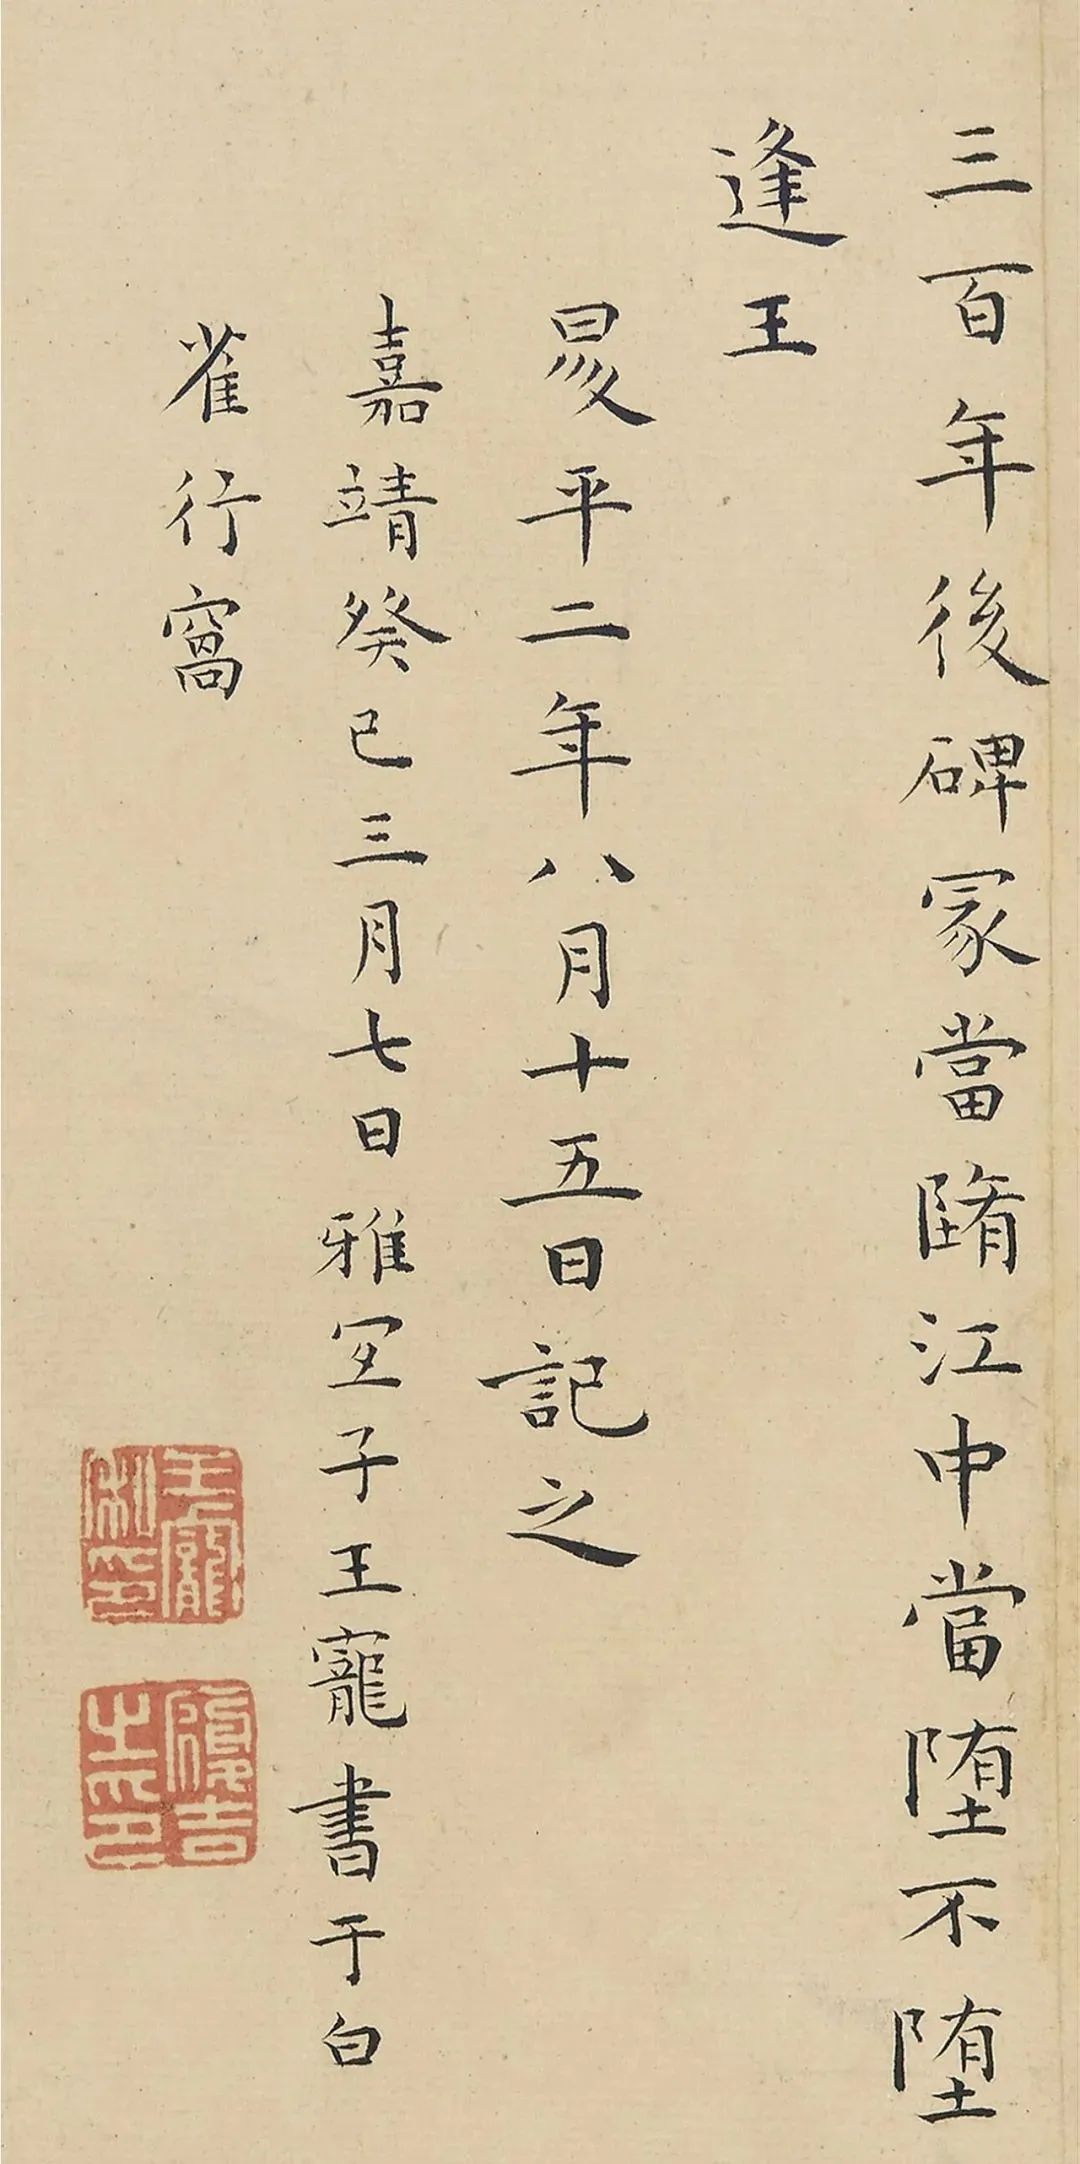 三百年後碑冢當墮江中當堕不堕
逢王
昇平二年八月十五日記之
嘉靖癸巳三月七日雅宜子王寵書于白
雀行窩
王寵私印
履吉之印